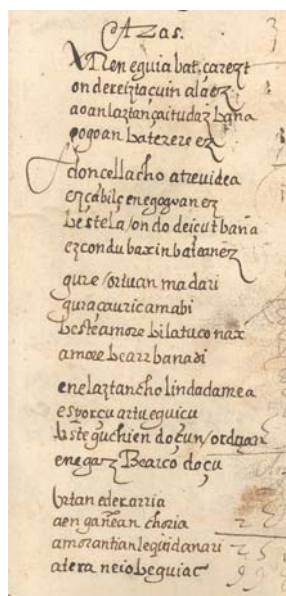 Azas.
Nen eguia bat çarezt
ondereiztacuin alaez
aoan laztançaitudaz baña
gogoan batere ez
doncellacho atreuidea
ezcabilç ene gogoan ez
bestela / ondo deicut baña
ezcondu baxin bateanez
gure / ortuan madari
guraçauricamabi
beste amore bilatuco nax
amore bearr banadi
ene laztancho linda damea
esporçu artu eguicu
beste guchien doçun / orduan
enegaz Bearco doçu
Urtan eder arria
aen gañean choria
amorantian legindanari
atera neio beguiac